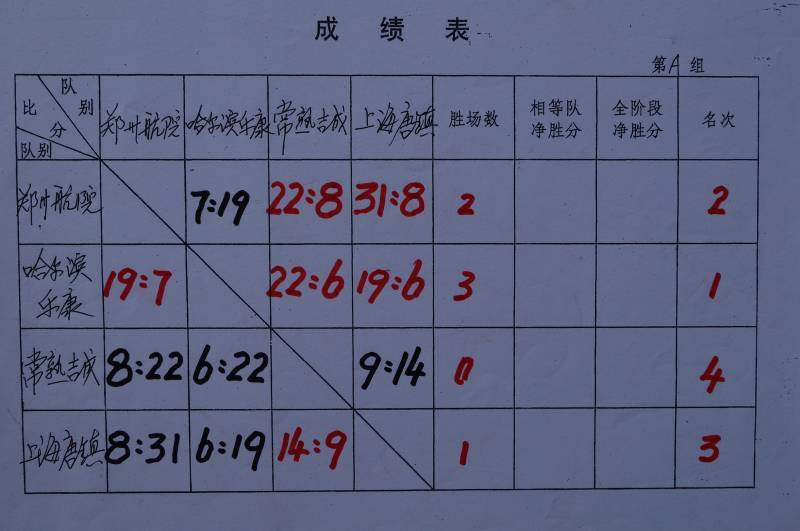 成 绩 表
第A组
队别
比分
队别
郑州航院 哈尔滨乐康 常熟吉成 上海唐镇 胜场数 相等队净胜分 全阶段净胜分 名次
郑州航院 7:19 22:8 31:8 2 2
哈尔滨乐康 19:7 22:6 19:6 3 1
常熟吉成 8:22 6:22 9:14 0 4
上海唐镇 8:31 6:19 14:9 1 3